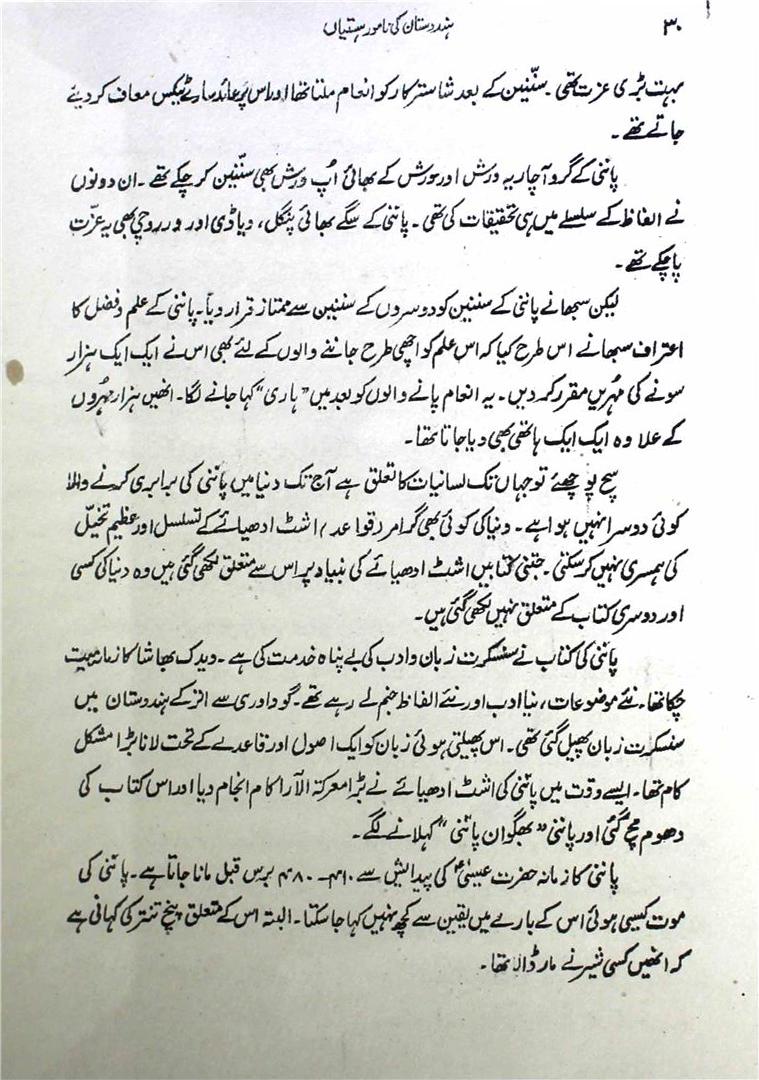 ۳۰
ہندوستان کی نامور ہستیاں
بہت بڑی عزت تھی۔ سنّنین کے بعد شاستر کار کو انعام ملتا تھا اور اس پر عائد سارے ٹیکس معاف کر دیئے
جاتے تھے۔
پاننی کے گرو آچاریہ ورش اور ورش کے بھائی اُپ ورش بھی سنّنین کر چکے تھے۔ ان دونوں
نے الفاظ کے سلسلے میں ہی تحقیقات کی تھی۔ پاننی کے سگے بھائی پنگل، دیاڈی اور ورروچی بھی یہ عزّت
پا چکے تھے۔
لیکن سبھا نے پاننی کے سننین کو دوسروں کے سننین سے ممتاز قرار دیا۔ پاننی کے علم و فضل کا
اعتراف سبھا نے اس طرح کیا کہ اس علم کو اچھی طرح جاننے والوں کے لئے بھی اس نے ایک ایک ہزار
سونے کی مُہریں مقرر کر دیں۔ یہ انعام پانے والوں کو بعد میں ”ہاری“ کہا جانے لگا۔ انھیں ہزار مُہروں
کے علاوہ ایک ایک ہاتھی بھی دیا جاتا تھا۔
سچ پوچھئے تو جہاں تک لسانیات کا تعلق ہے آج تک دنیا میں پاننی کی برابری کرنے والا
کوئی دوسرا نہیں ہوا ہے۔ دنیا کی کوئی بھی گرامر (قواعد) اشٹ ادھیائے کے تسلسل اور عظیم تخیّل
کی ہمسری نہیں کر سکتی۔ جتنی کتابیں اشٹ ادھیائے کی بنیاد پر اس سے متعلق لکھی گئی ہیں وہ دنیا کی کسی
اور دوسری کتاب کے متعلق نہیں لکھی گئی ہیں۔
پاننی کی کتاب نے سنسکرت زبان و ادب کی بے پناہ خدمت کی ہے۔ ویدک بھاشا کا زمانہ بیت
چکا تھا۔ نئے موضوعات، نیا ادب اور نئے الفاظ جنم لے رہے تھے۔ گوداوری سے اتر کے ہندوستان میں
سنسکرت زبان پھیل گئی تھی۔ اس پھیلتی ہوئی زبان کو ایک اصول اور قاعدے کے تحت لانا بڑا مشکل
کام تھا۔ ایسے وقت میں پاننی کی اشٹ ادھیائے نے بڑا معرکۃ الآرا کام انجام دیا اور اس کتاب کی
دھوم مچ گئی اور پاننی ”بھگوان پاننی“ کہلانے لگے۔
پاننی کا زمانہ حضرت عیسیٰؑ کی پیدائش سے ۴۱۰۔۴۸۰ برس قبل مانا جاتا ہے۔ پاننی کی
موت کیسی ہوئی اس کے بارے میں یقین سے کچھ نہیں کہا جا سکتا۔ البتہ اس کے متعلق پنچ تنتر کی کہانی ہے
کہ انھیں کسی شیر نے مار ڈالا تھا۔